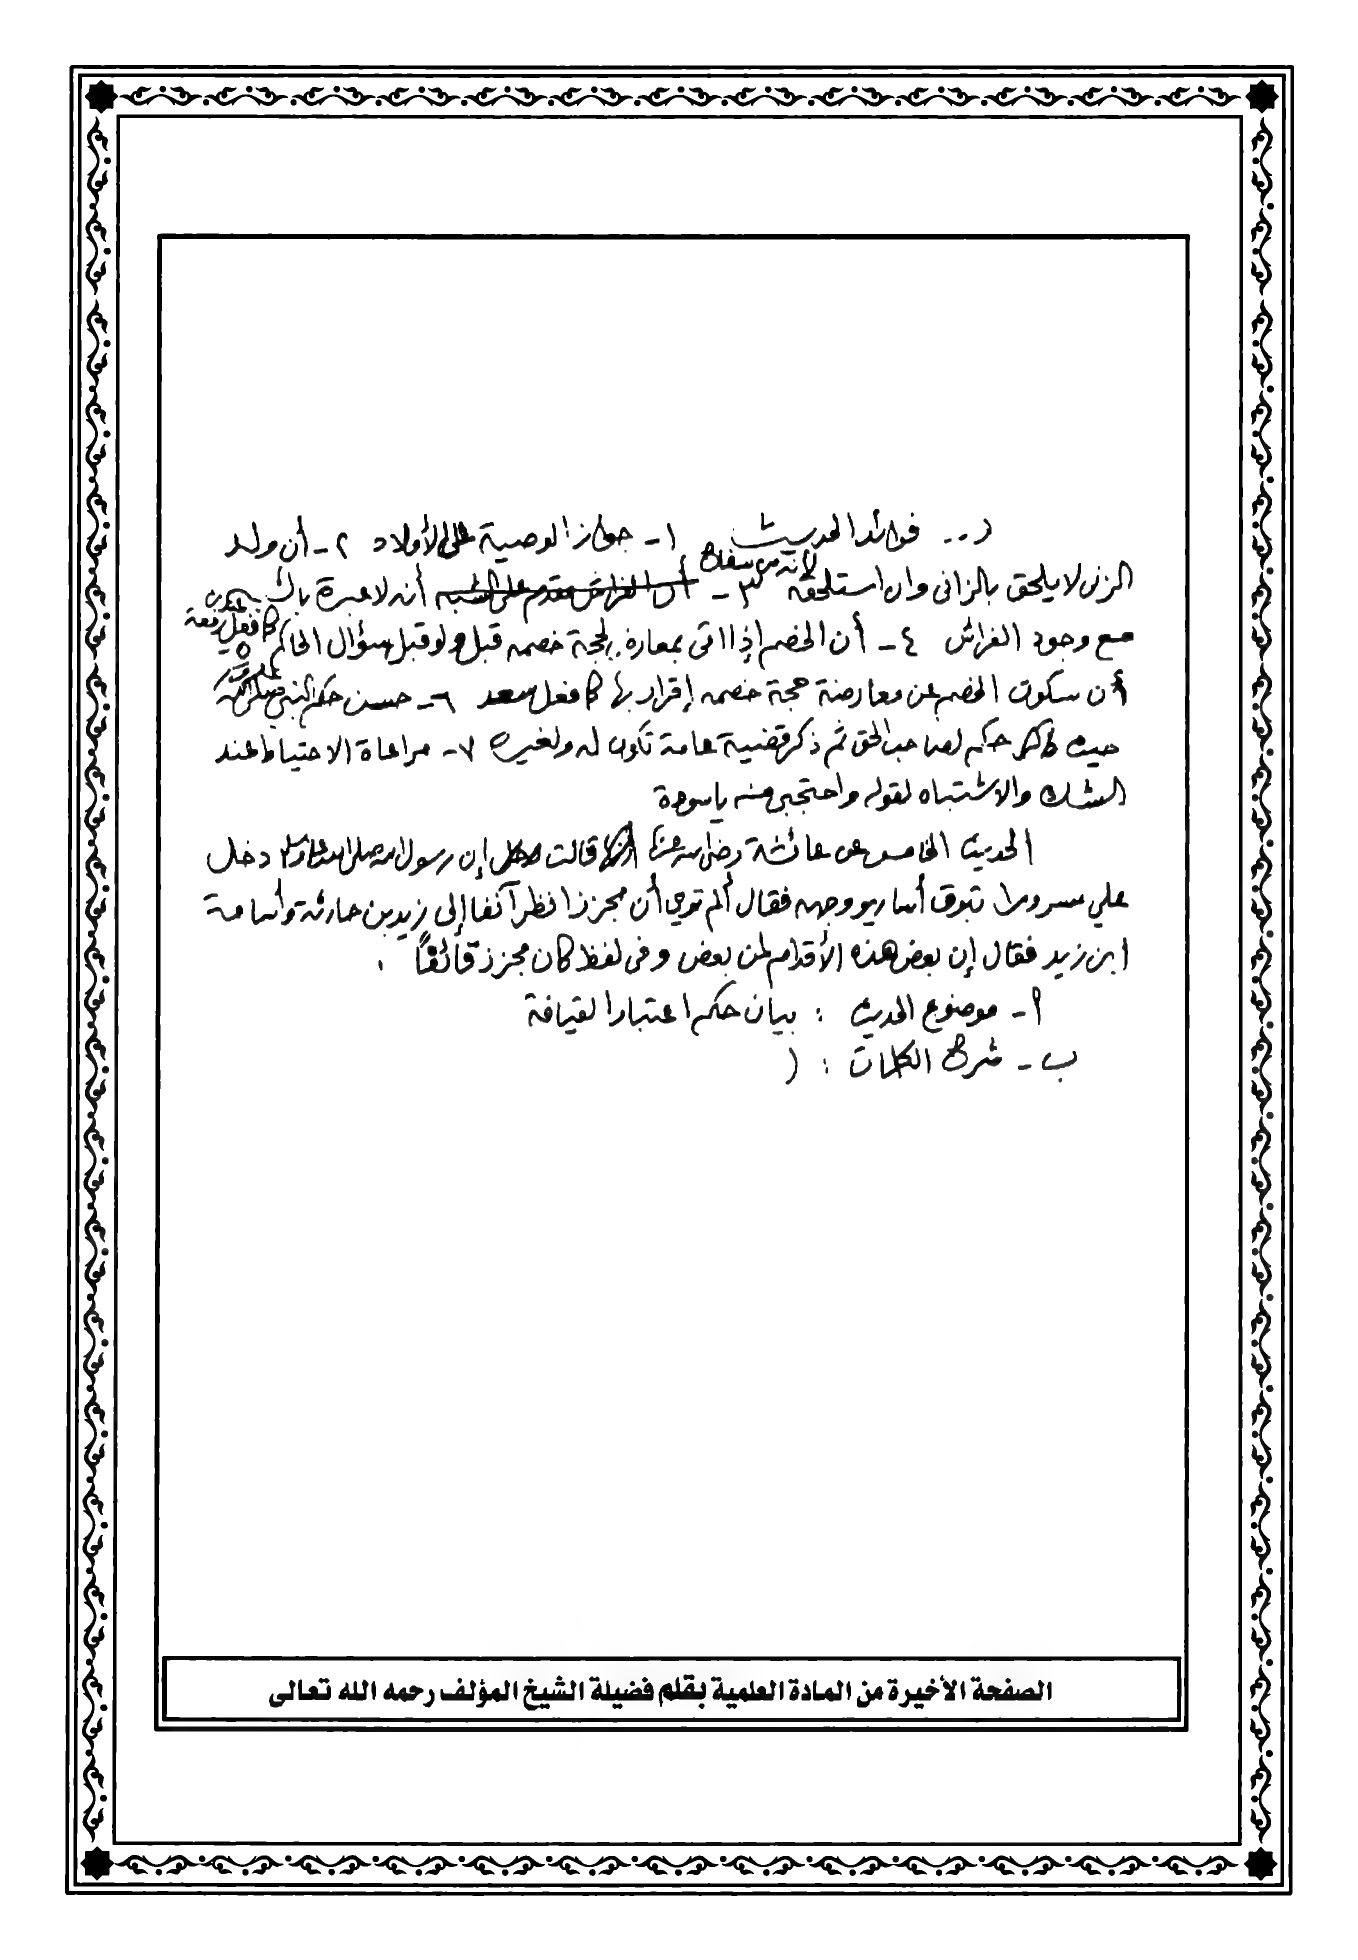 د.. فوائد الحديث ١- جواز الوصية على الأولاد ٢- أن ولد
لأنه من سفاح
الزنى لا يلحق بالزاني وإن استلحقه ٣- أن الفراش مقدم على الشبه أنه لا عبرة بالشبه
مع وجود الفراش ٤- أن الخصم إذا أتى بمعارض لحجة خصمه قبل ولو قبل سؤال الحاكم كما فعل زمعة ٥
أن سكوت الخصم عن معارضة حجة خصمه إقرار بها كما فعل سعد ٦- حسن حكم النبي صلى الله عليه وسلم
حيث حكم لصاحب الحق ثم ذكر قضية عامة تكون له ولغيره ٧- مراعاة الاحتياط عند
الشك والاشتباه لقوله واحتجبي منه يا سودة
الحديث الخامس عن عائشة رضي الله عنها أنها قالت إن رسول الله صلى الله عليه وسلم دخل
علي مسرورا تبرق أسارير وجهه فقال ألم تري أن مجززا نظر آنفا إلى زيد بن حارثة وأسامة
ابن زيد فقال إن بعض هذه الأقدام لمن بعض وفي لفظ كان مجزز قائفاً .
أ- موضوع الحديث : بيان حكم اعتبار القيافة
ب- شرح الكلمات : (
الصفحة الأخيرة من المادة العلمية بقلم فضيلة الشيخ المؤلف رحمه الله تعالى